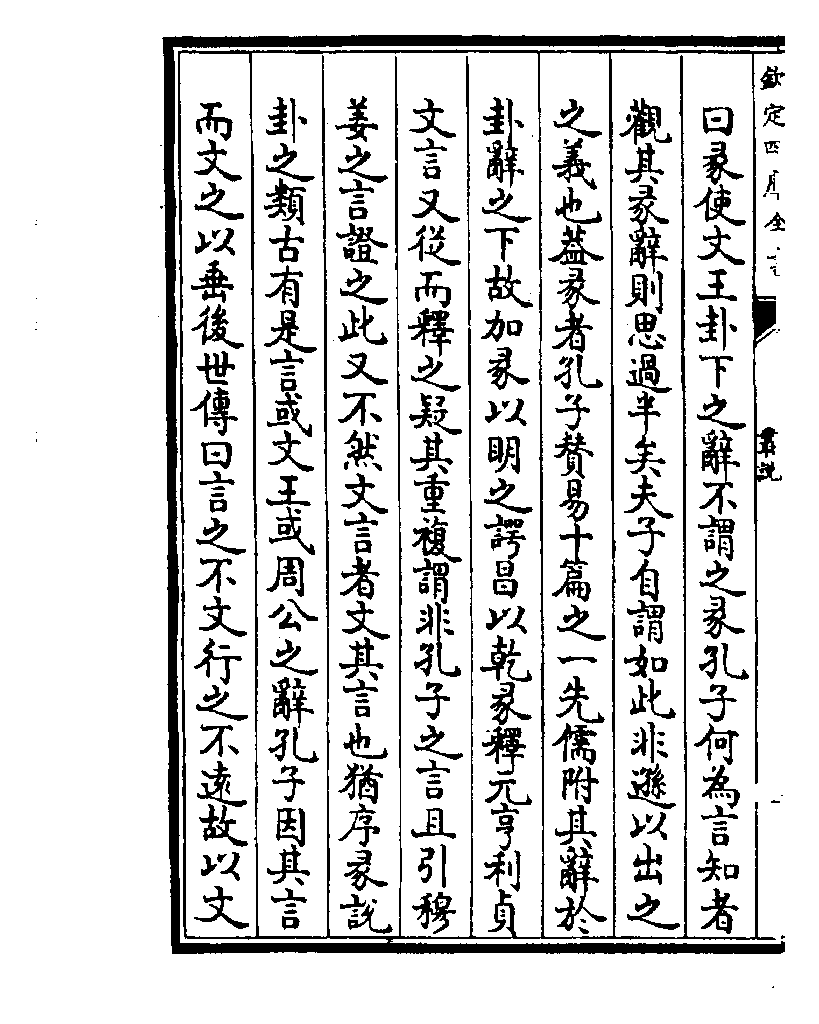 欽定四庫全書
叢說
曰彖使文王卦下之辭不謂之彖孔子何為言知者
觀其彖辭則思過半矣夫子自謂如此非遜以出之
之義也葢彖者孔子賛易十篇之一先儒附其辭於
卦辭之下故加彖以明之諤昌以乾彖釋元亨利貞
文言又從而釋之疑其重複謂非孔子之言且引穆
姜之言證之此又不然文言者文其言也猶序彖說
卦之類古有是言或文王或周公之辭孔子因其言
而文之以垂後世傳曰言之不文行之不遠故以文